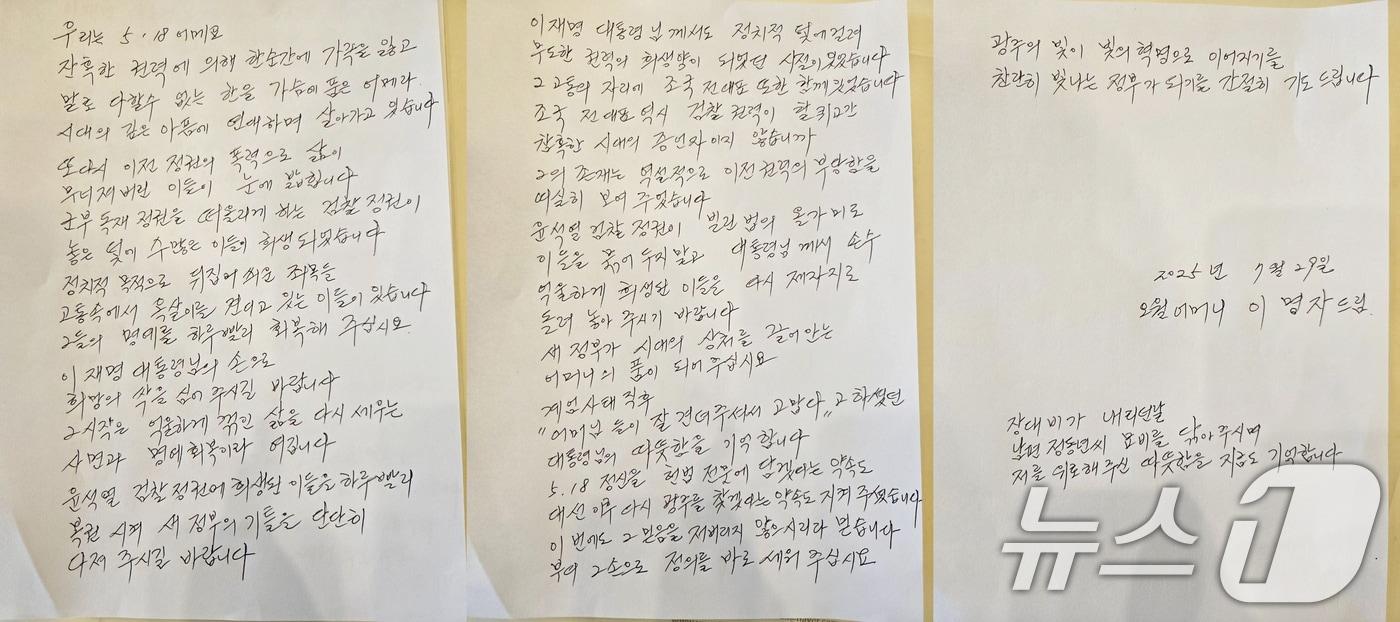 우리는 5.18 어메요
잔혹한 권력에 의해 한순간에 가족을 잃고
말로 다할수 없는 한을 가슴에 품은 어메라
시대의 깊은 아픔에 연대하며 살아가고 있습니다
또다시 이전 정권의 폭력으로 삶이
무너져버린 이들이 눈에 밟힙니다
군부 독재 정권을 떠올리게 하는 검찰 정권이
놓은 덫에 수많은 이들이 희생 되었습니다
정치적 목적으로 뒤집어 씌운 죄목들
고통속에서 옥살이를 견디고 있는 이들이 있습니다
그들의 명예를 하루빨리 회복해 주십시요
이재명 대통령님의 손으로
희망의 싹을 심어 주시길 바랍니다
그시작은 억울하게 꺾인 삶을 다시 세우는
사면과 명예회복이라 여깁니다
윤석열 검찰정권에 희생된 이들을 하루빨리
복권 시켜 새 정부의 기틀을 단단히
다져 주시길 바랍니다
이재명 대통령님께서도 정치적 덫에걸려
무도한 권력의 희생양이 되었던 시절이 있었습니다
그 고통의 자리에 조국 전대표 또한 함께 있었습니다
조국 전대표 역시 검찰 권력이 할퀴고간
참혹한 시대의 증언자이지 않습니까
그의 존재는 역설적으로 이전권력의 부당함을
여실히 보여 주었습니다
윤석열 검찰 정권이 빌린 법의 올가미로
이들을 묶어 두지말고 대통령님께서 손수
억울하게 희생된 이들을 다시 제자리로
돌려 놓아 주시기 바랍니다
새 정부가 시대의 상처를 끌어안는
어머니의 품이 되어주십시요
계엄사태 직후
"어머님 들이 잘 견뎌주셔서 고맙다" 고 하셨던
대통령님의 따뜻함을 기억합니다
5.18 정신을 헌법 전문에 담겠다는 약속도
대선 이후 다시 광주를 찾겠다는 약속도 지켜 주셨습니다
이 번에도 그 믿음을 저버리지 않으시리라 믿습니다
부디 그손으로 정의를 바로 세워 주십시요
광주의 빛이 빛의 혁명으로 이어지기를
찬란히 빛나는 정부가 되기를 간절히 기도 드립니다
2025년 7월 29일
오월어머니 이 명자 드림
장대비가 내리던날
남편 정동년씨 묘비를 닦아 주시며
저를 위로해주신 따뜻함을 지금도 기억합니다
뉴스1